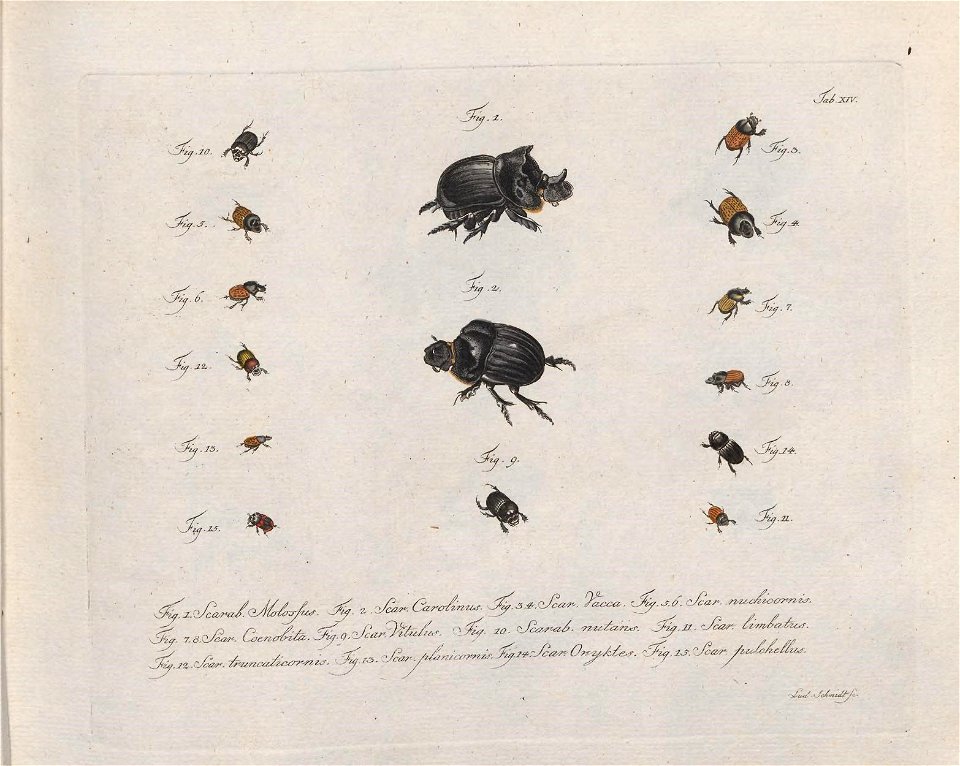 Tab. XIV.
Fig. 1.
Fig. 10.
Fig. 3.
Fig. 5.
Fig. 4.
Fig. 6.
Fig. 2.
Fig. 7.
Fig. 12.
Fig. 8.
Fig. 13.
Fig. 9.
Fig. 14.
Fig. 15.
Fig. 11.
Fig. 1. Scarab. Molossus. Fig. 2. Scar. Carolinus. Fig. 3.4. Scar. Vacca. Fig. 5.6. Scar. nuchicornis.
Fig. 7.8. Scar. Coenobita. Fig. 9. Scar. Vitulus. Fig. 10. Scarab. nutans. Fig. 11. Scar. limbatus.
Fig. 12. Scar. truncaticornis. Fig. 13. Scar. planicornis. Fig. 14. Scar. Onyktes. Fig. 15. Scar. pulchellus.
Lud. Schmidt fc.